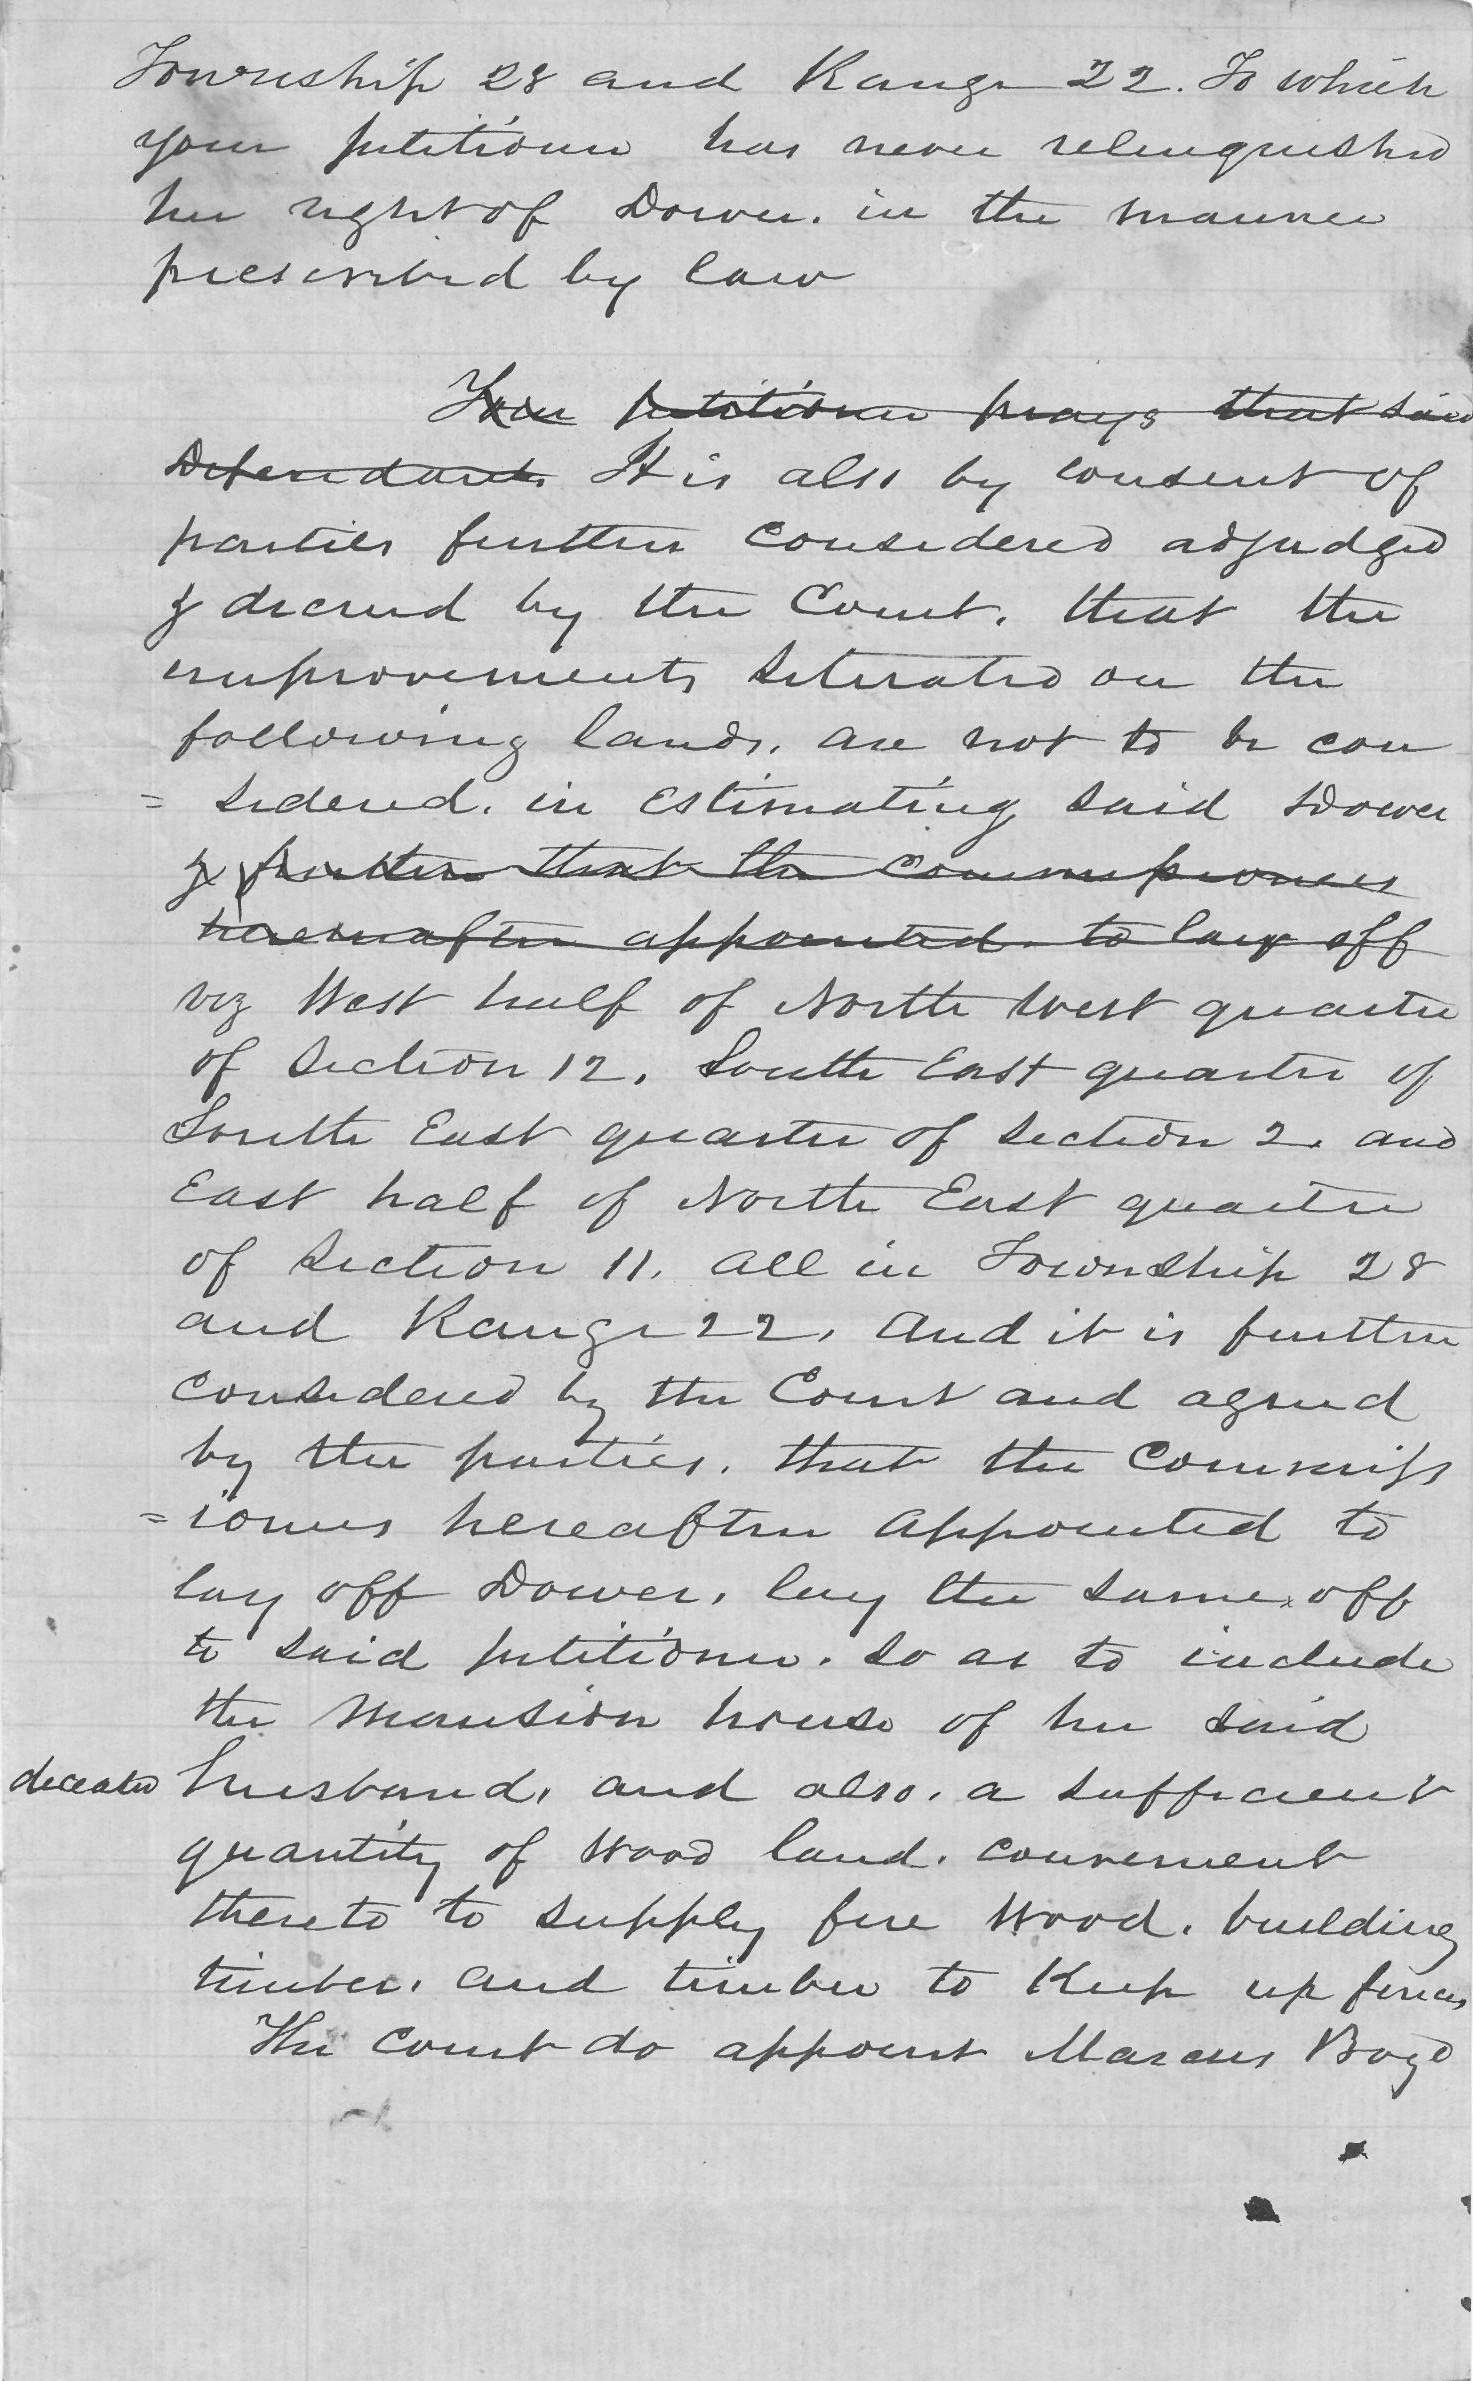 Township 28 and Range 22. To which
your petitioner has never relinquished
her right of Dower. in the manner
prescribed by law
Your petitioner prays that said
Defendants It is also by consent of
parties further considered adjudged
& decreed by the Court. that the
improvements situated on the
following lands. are not to be con
= sidered. in estimating said Dower
& further that the commissioners
hereinafter appointed. to lay off
viz West half of North West quarter
of Section 12. South East quarter of
South East quarter of Section 2. and
East half of North East quarter
of Section 11. all in Township 28
and Range 22. And it is further
considered by the Court and agreed
by the parties. that the Commiss
= ioners hereafter appointed to
lay off Dower. lay the same off
to said petitioner. so as to include
the Mansion house of her said
deceased husband. and also. a sufficient
quantity of Wood land. convenient
thereto to supply fire Wood. building
timber. and timber to Keep up fences
The Court do appoint Marcus Boyd